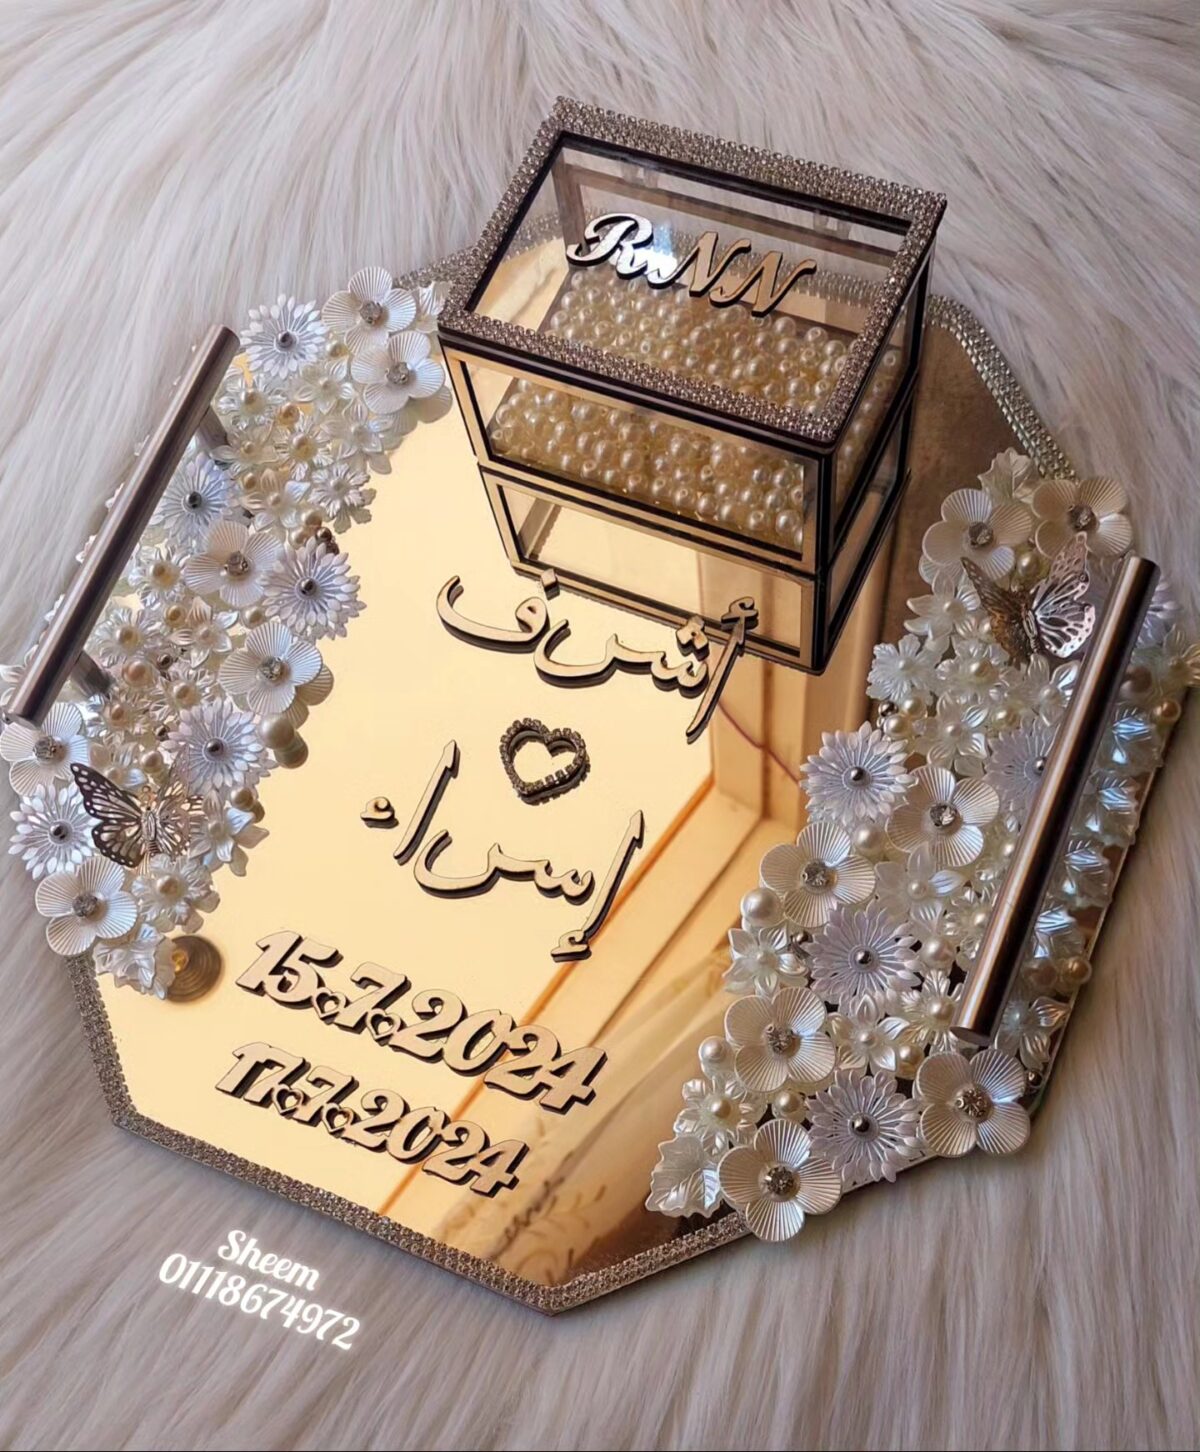 RNN
أشرف
إسراء
15.7.2024
17.7.2024
Sheem
01118674972